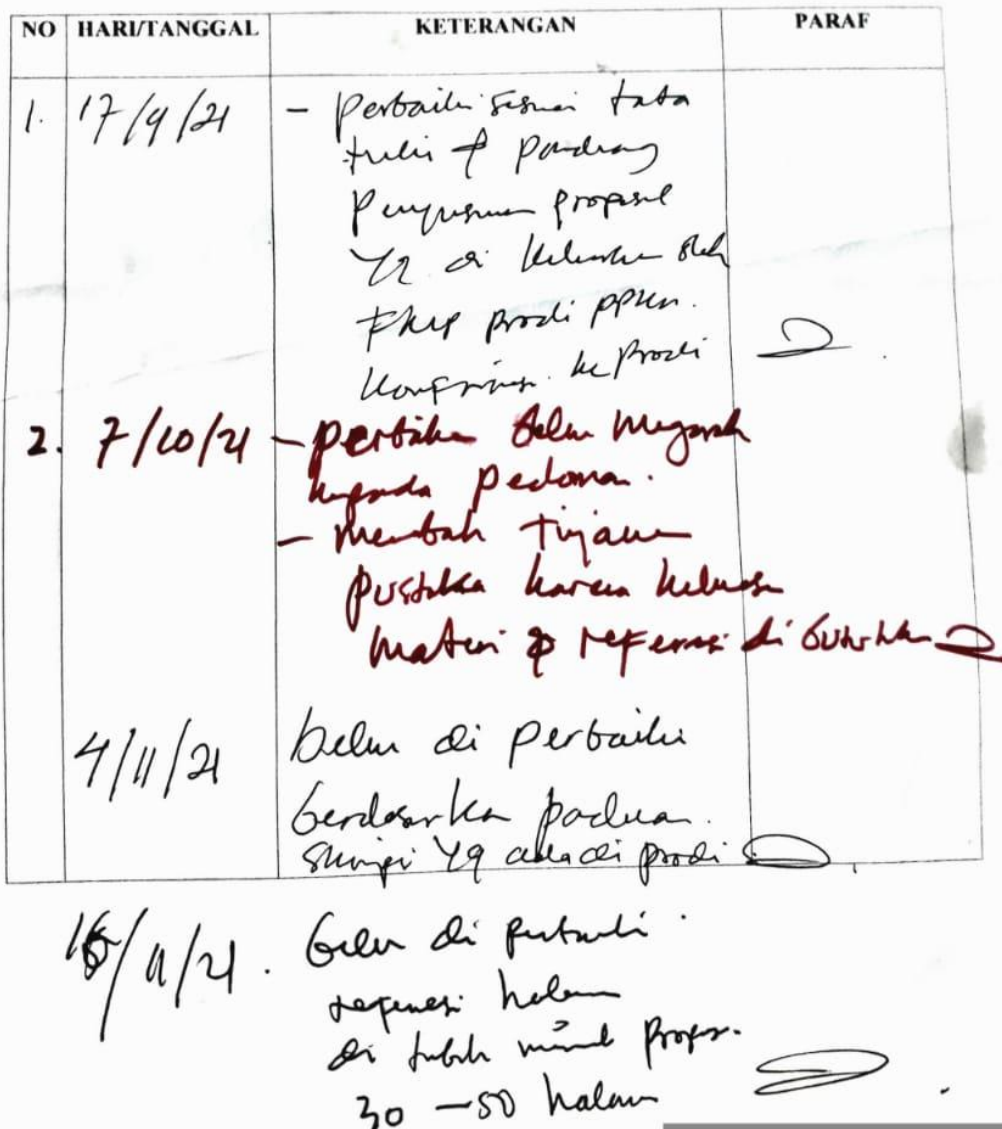 NO HARI/TANGGAL KETERANGAN PARAF
1. 17/9/21 - Perbaiki sesuai tata
tulis & panduang
penyusunan proposal
yg di keluarkan oleh
FKIP prodi ppkn.
ke Prodi
2. 7/10/21 - perbaikan belum
kepada pedoman.
- menambah tinjauan
pustaka karena
materi & referensi di butuhkan
4/11/21 belum di perbaiki
berdasarkan paduan
skripsi yg ada di prodi
/11/21. belum di perbaiki
referensi halaman
di
30 - 50 halaman